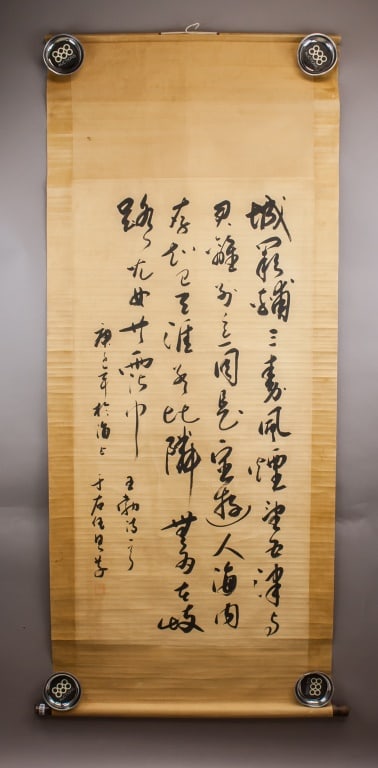 城闕輔三秦風煙望五津与
君離別意同是宦遊人海內
存知己天涯若比隣無為在岐
路兒女共霑巾
王勃詩一首
庚子年於海上 于右任